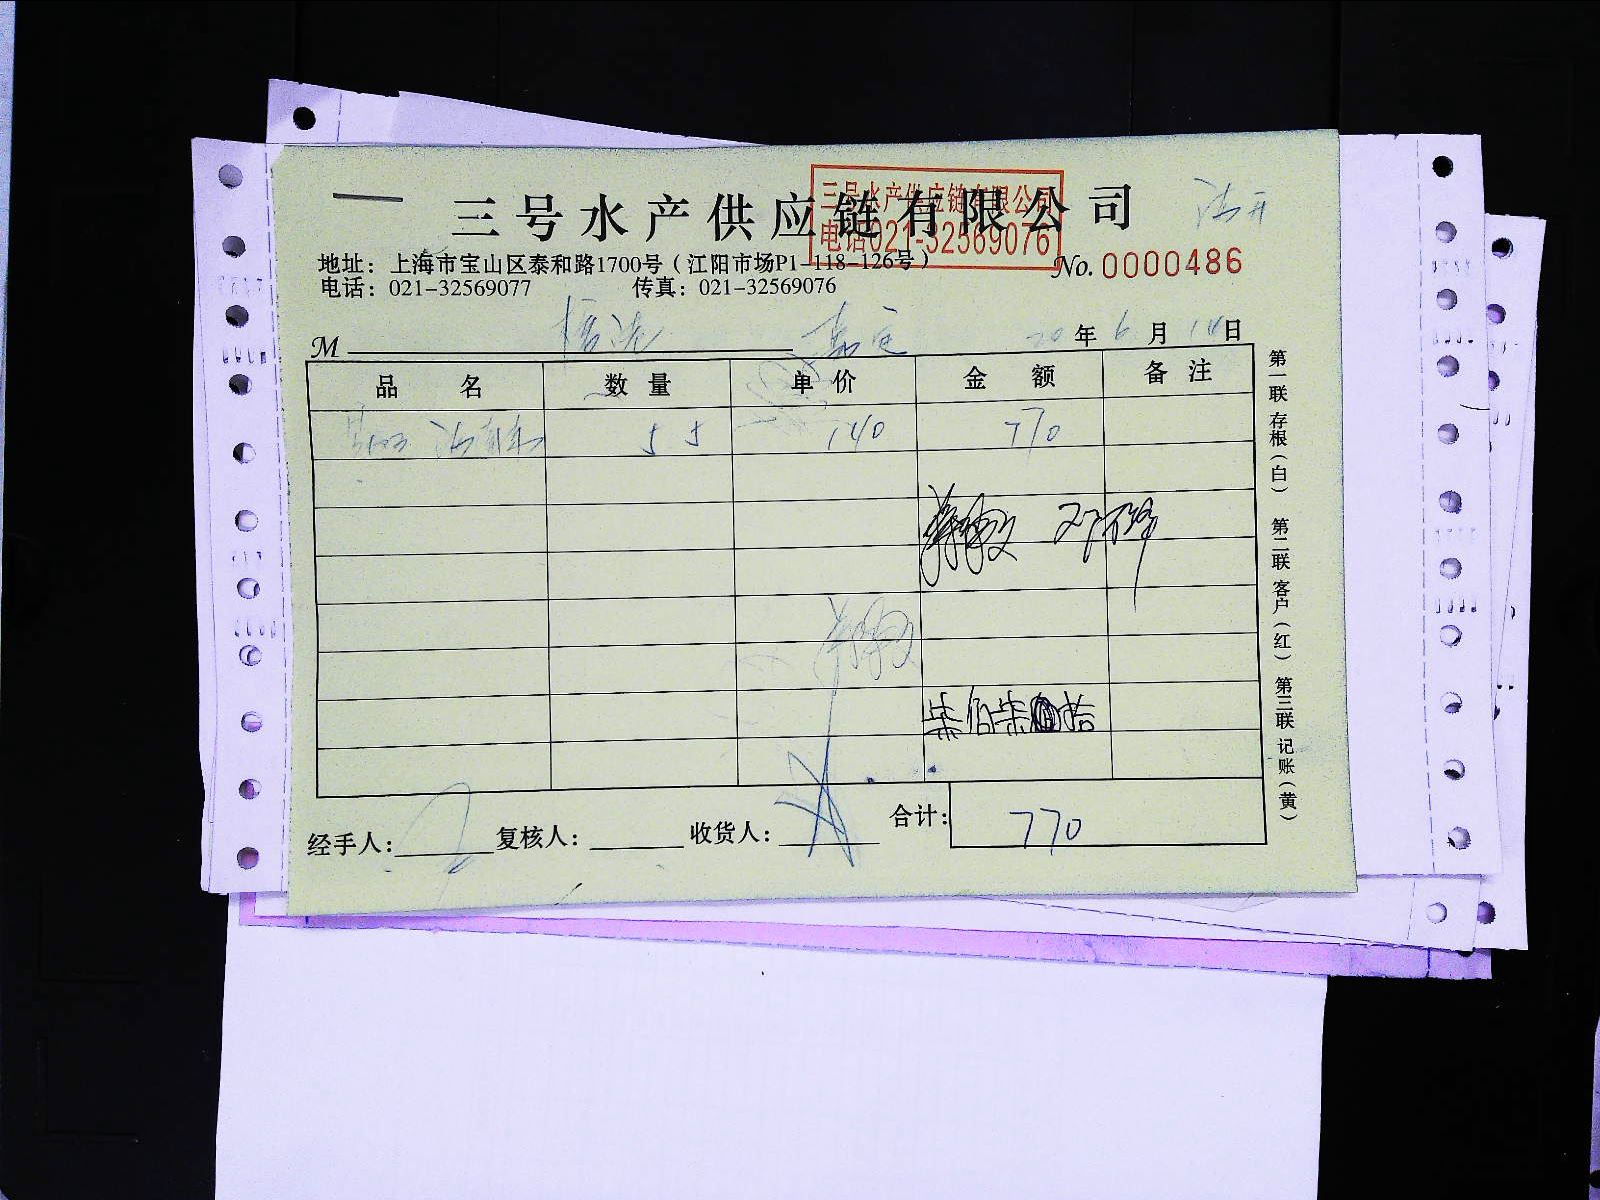 三号水产供应链有限公司
三号水产供应链有限公司
电话021-32569076
地址：上海市宝山区泰和路1700号（江阳市场P1-118-126号）
No. 0000486
电话：021-32569077 传真：021-32569076
M 嘉定 20年6月14日
品名 数量 单价 金额 备注
55 140 770
柒佰柒拾
合计： 770
经手人： 复核人： 收货人：
第一联 存根（白） 第二联 客户（红） 第三联 记账（黄）